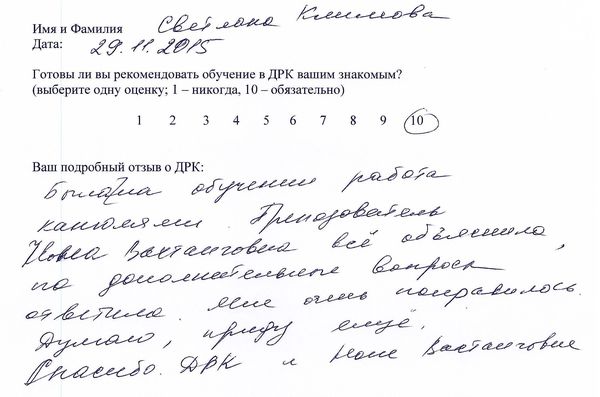 Имя и Фамилия Светлана Климова
Дата: 29.11.2015
Готовы ли вы рекомендовать обучение в ДРК вашим знакомым?
(выберите одну оценку; 1 – никогда, 10 – обязательно)
1 2 3 4 5 6 7 8 9 10
Ваш подробный отзыв о ДРК:
Была на обучении работа
канюлями. Преподователь
Нонна Вахтанговна всё объяснила,
на дополнительные вопросы
ответила. Мне очень понравилось.
Думаю, приду ещё.
Спасибо ДРК и Нонне Вахтанговне